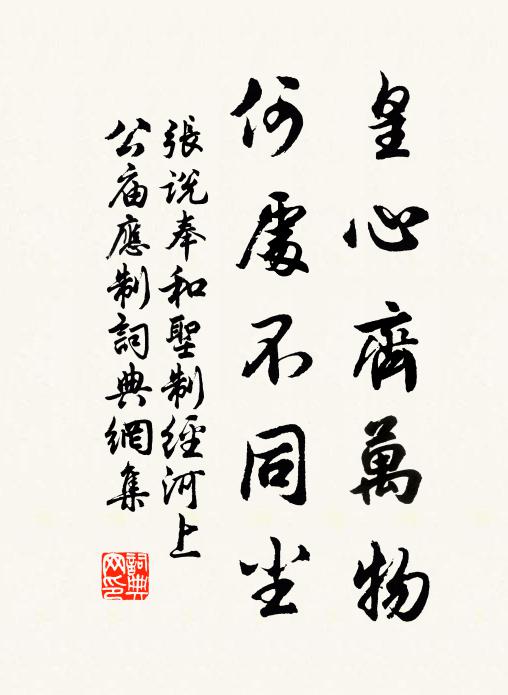 皇心齊萬物
何處不同尘
張説奉和聖制經河上
公庙應制詞典網集
詞典
网印